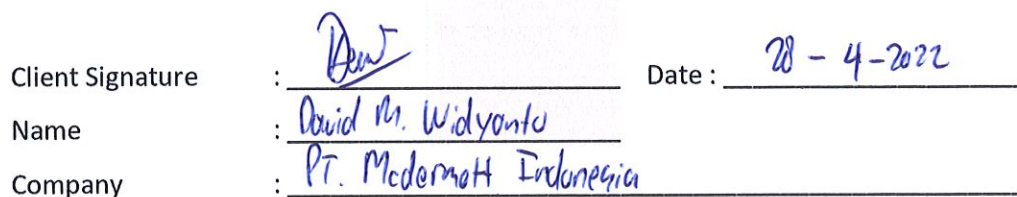 Client Signature : Date : 28 - 4 - 2022
Name : David M. Widyanto
Company : PT. Mcdermott Indonesia